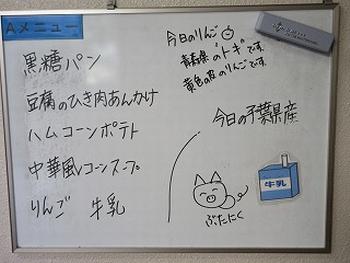 Aメニュー
黒糖パン
豆腐のひき肉あんかけ
ハムコーンポテト
中華風コーンスープ
りんご 牛乳
今日のりんご
青森県"トキ"です。
黄色の皮のりんごです。
今日の千葉県産
牛乳
ぶたにく